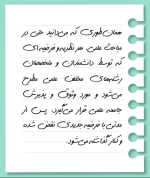 همان‌طوری که می‌دانید حتی در
مباحث علمی، هر نظریه و فرضیه‌ای
که توسط دانشمندان و متخصصان
رشته‌های مختلف علمی مطرح
می‌شود و مورد وثوق و پذیرش
جامعه علمی قرار می‌گیرد، پس از
مدتی با فرضیه جدیدی نقض شده
و کنار گذاشته می‌شود.